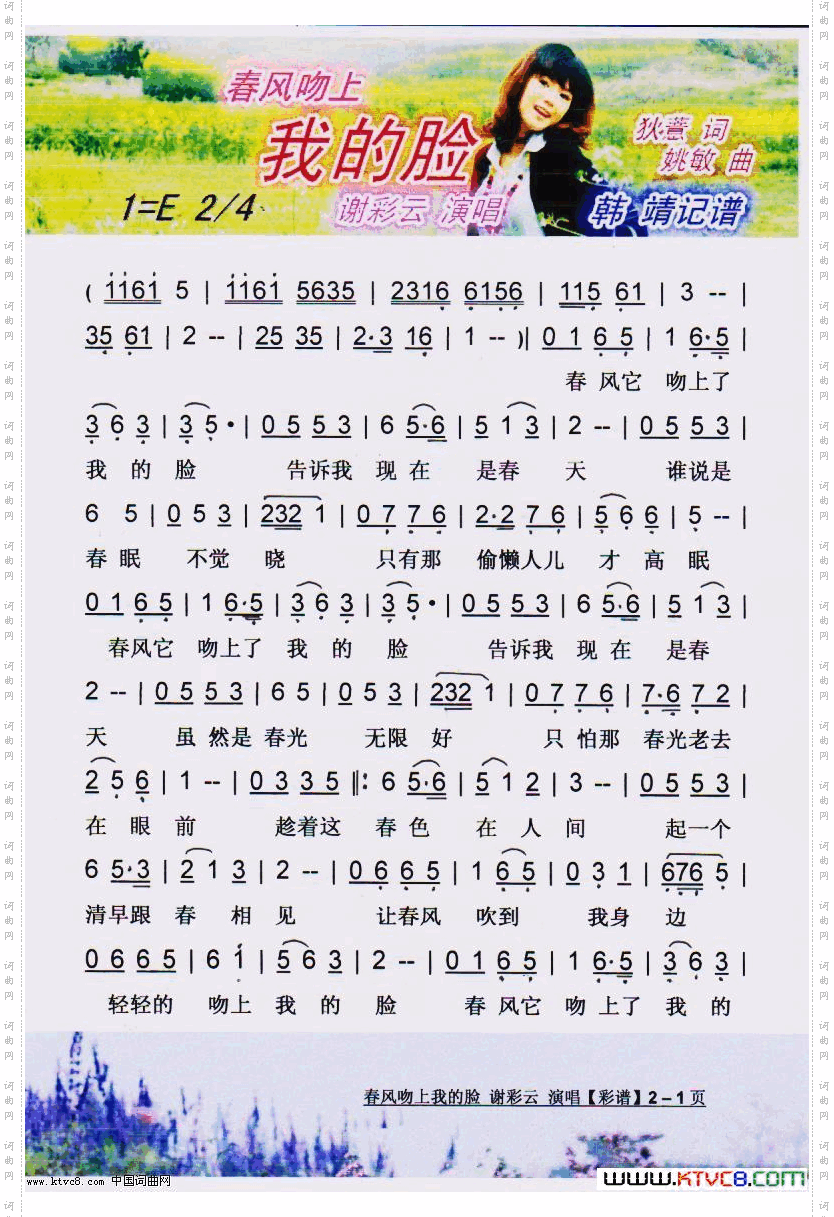 春风吻上
我的脸
狄薏 词
姚敏 曲
1=E 2/4
谢彩云 演唱
韩 靖记谱
( 1161 5 | 1161 5635 | 2316 6156 | 115 61 | 3 -- |
35 61 | 2 -- | 25 35 | 2·3 16 | 1 -- )| 0 1 6 5 | 1 6·5 |
春 风它 吻上了
3 6 3 | 3 5· | 0 5 5 3 | 6 5·6 | 5 1 3 | 2 -- | 0 5 5 3 |
我 的 脸 告诉我 现 在 是春 天 谁说是
6 5 | 0 5 3 | 232 1 | 0 7 7 6 | 2·2 7 6 | 5 6 6 | 5 -- |
春 眠 不觉 晓 只有那 偷懒人儿 才 高 眠
0 1 6 5 | 1 6·5 | 3 6 3 | 3 5· | 0 5 5 3 | 6 5·6 | 5 1 3 |
春风它 吻上了 我 的 脸 告诉我 现 在 是春
2 -- | 0 5 5 3 | 6 5 | 0 5 3 | 232 1 | 0 7 7 6 | 7·6 7 2 |
天 虽 然是 春光 无限 好 只 怕那 春光老去
2 5 6 | 1 -- | 0 3 3 5 ‖: 6 5·6 | 5 1 2 | 3 -- | 0 5 5 3 |
在 眼 前 趁着这 春 色 在 人 间 起一个
6 5·3 | 2 1 3 | 2 -- | 0 6 6 5 | 1 6 5 | 0 3 1 | 676 5 |
清早跟 春 相 见 让春风 吹到 我身 边
0 6 6 5 | 6 1 | 5 6 3 | 2 -- | 0 1 6 5 | 1 6·5 | 3 6 3 |
轻轻的 吻上 我 的 脸 春 风它 吻上了 我 的
春风吻上我的脸 谢彩云 演唱【彩谱】2－1页
www.ktvc8.com 中国词曲网
www.KTVC8.com